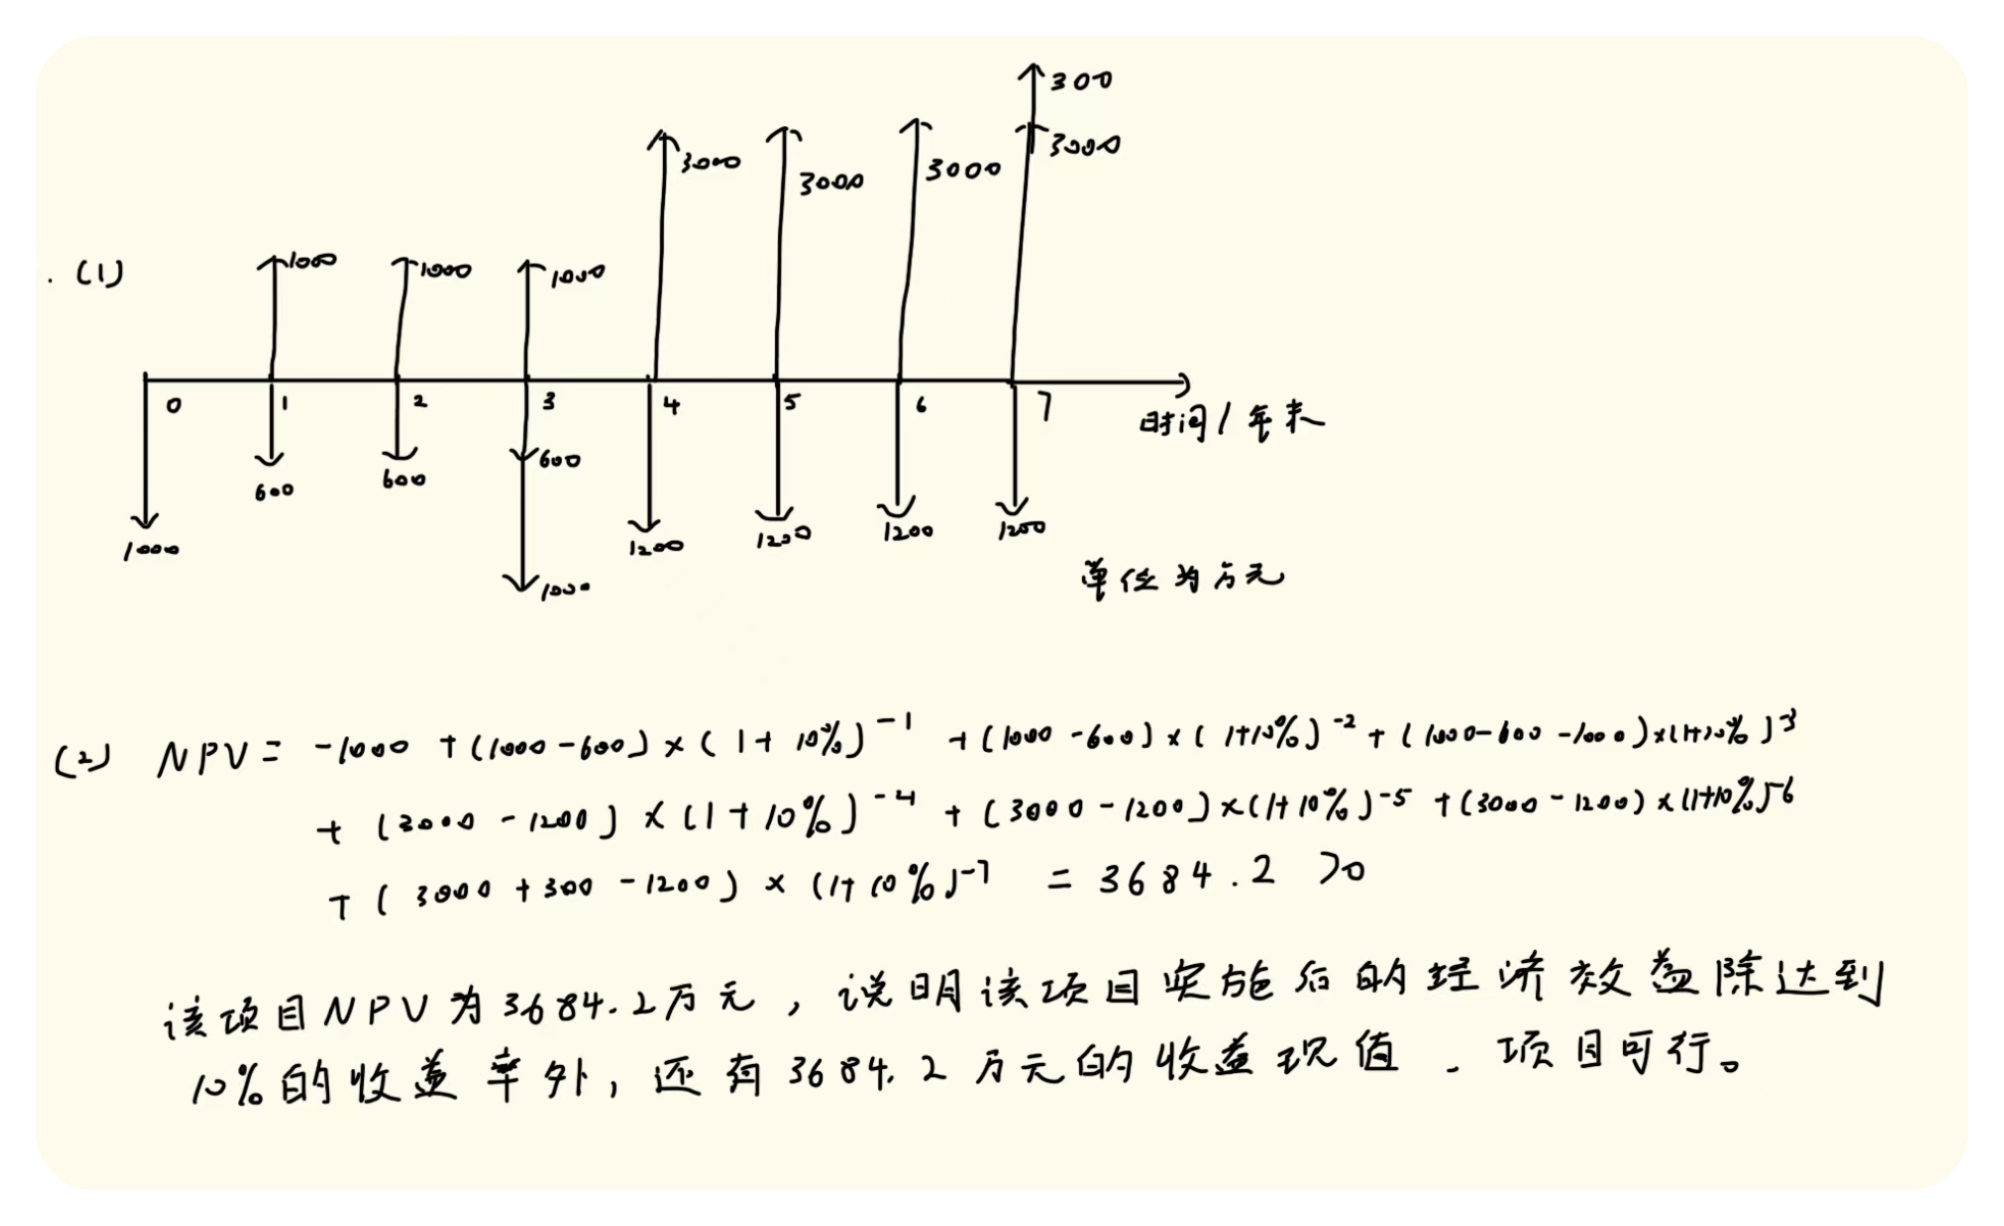 300
3000
3000
3000
3000
. (1)
1000
1000
1000
0 1 2 3 4 5 6 7
时间/年末
600
600
600
1000
1200
1200
1200
1200
1000
单位为万元
(2) NPV = -1000 + (1000-600) × (1+10%)⁻¹ + (1000-600) × (1+10%)⁻² + (1000-600-1000)×(1+10%)⁻³
+ (3000-1200) × (1+10%)⁻⁴ + (3000-1200)×(1+10%)⁻⁵ + (3000-1200)×(1+10%)⁻⁶
+ (3000+300-1200) × (1+10%)⁻⁷ = 3684.2 >0
该项目NPV为3684.2万元，说明该项目实施后的经济效益除达到
10%的收益率外，还有3684.2万元的收益现值．项目可行。